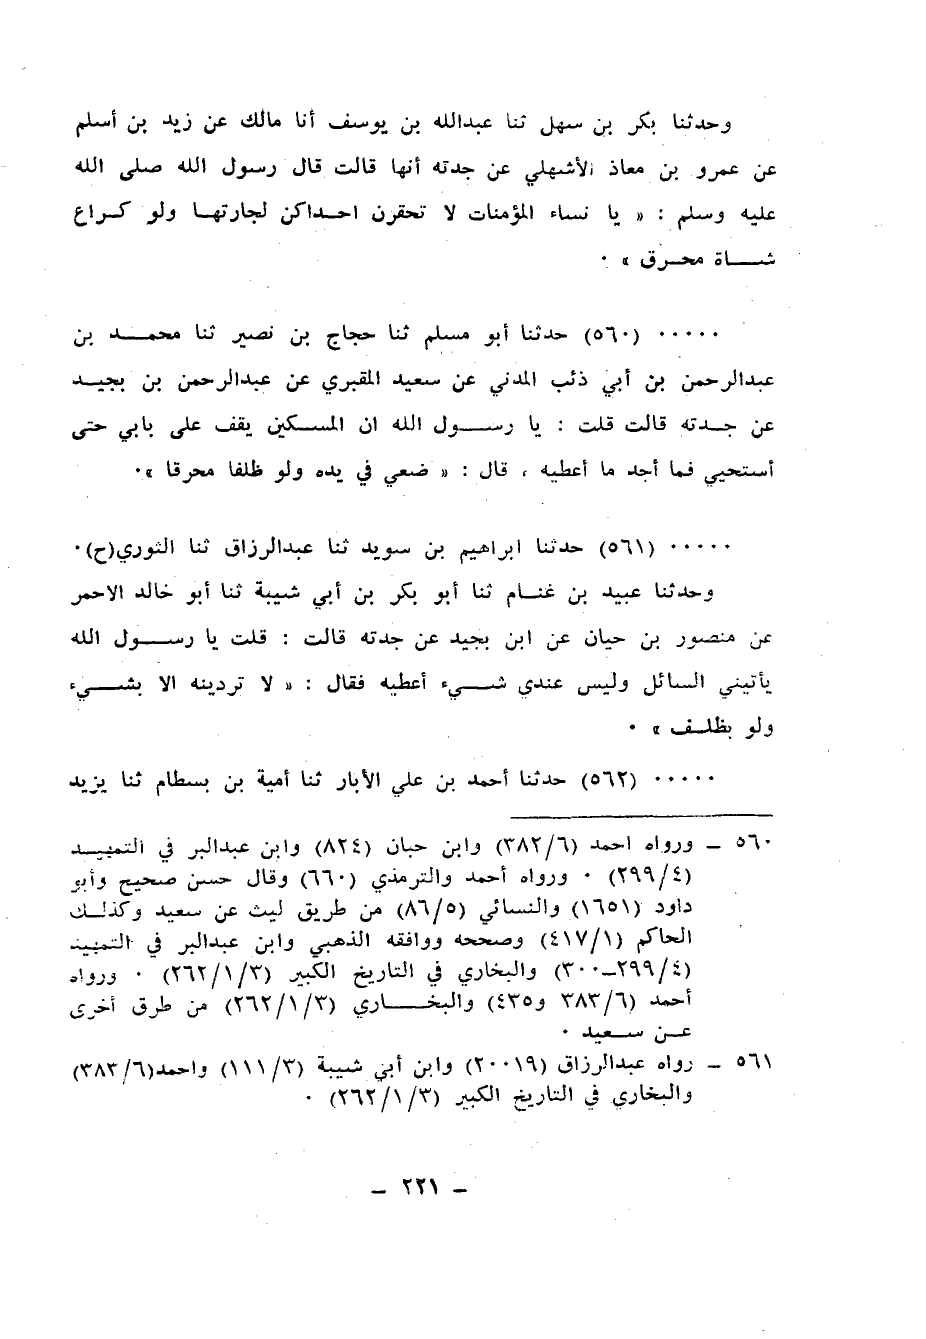 وحدثنا بكر بن سهل ثنا عبدالله بن يوسف أنا مالك عن زيد بن أسلم
عن عمرو بن معاذ الأشهلي عن جدته أنها قالت قال رسول الله صلى الله
عليه وسلم : « يا نساء المؤمنات لا تحقرن احداكن لجارتهـا ولو كـراع
شـــاة محـرق » ٠
٠٠٠٠٠ (٥٦٠) حدثنا أبو مسلم ثنا حجاج بن نصير ثنا محمـــد بن
عبدالرحمن بن أبي ذئب المدني عن سعيد المقبري عن عبدالرحمن بن بجيـد
عن جـدته قالت قلت : يا رســـول الله ان المسـكين يقف على بابي حتى
أستحيي فما أجد ما أعطيه ، قال : « ضعي في يده ولو ظلفا محرقا »٠
٠٠٠٠٠ (٥٦١) حدثنا ابراهيم بن سويد ثنا عبدالرزاق ثنا الثوري(ح)٠
وحدثنا عبيد بن غنـام ثنا أبو بكر بن أبي شيبة ثنا أبو خالد الاحمر
عن منصور بن حيان عن ابن بجيد عن جدته قالت : قلت يا رســـول الله
يأتيني السائل وليس عندي شـــيء أعطيه فقال : « لا تردينه الا بشـــيء
ولو بظلـف » ٠
٠٠٠٠٠ (٥٦٢) حدثنا أحمد بن علي الأبار ثنا أمية بن بسطام ثنا يزيد
٥٦٠ ـ ورواه احمد (٣٨٢/٦) وابن حبان (٨٢٤) وابن عبدالبر في التمهيـد
(٢٩٩/٤) ٠ ورواه أحمد والترمذي (٦٦٠) وقال حسن صحيح وأبو
داود (١٦٥١) والنسائي (٨٦/٥) من طريق ليث عن سعيد وكذلـك
الحاكم (٤١٧/١) وصححه ووافقه الذهبي وابن عبدالبر في التمهيد
(٢٩٩/٤ـ٣٠٠) والبخاري في التاريخ الكبير (٢٦٢/١/٣) ٠ ورواه
أحمد (٣٨٣/٦ و٤٣٥) والبخـــاري (٢٦٢/١/٣) من طرق أخرى
عـن سـعيد ٠
٥٦١ ـ رواه عبدالرزاق (٢٠٠١٩) وابن أبي شيبة (١١١/٣) واحمد(٣٨٣/٦)
والبخاري في التاريخ الكبير (٢٦٢/١/٣) ٠
ـ ٢٢١ ـ